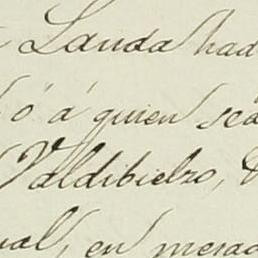 Landa had
ó á quien sea
Valdibielzo,
ual, en merca